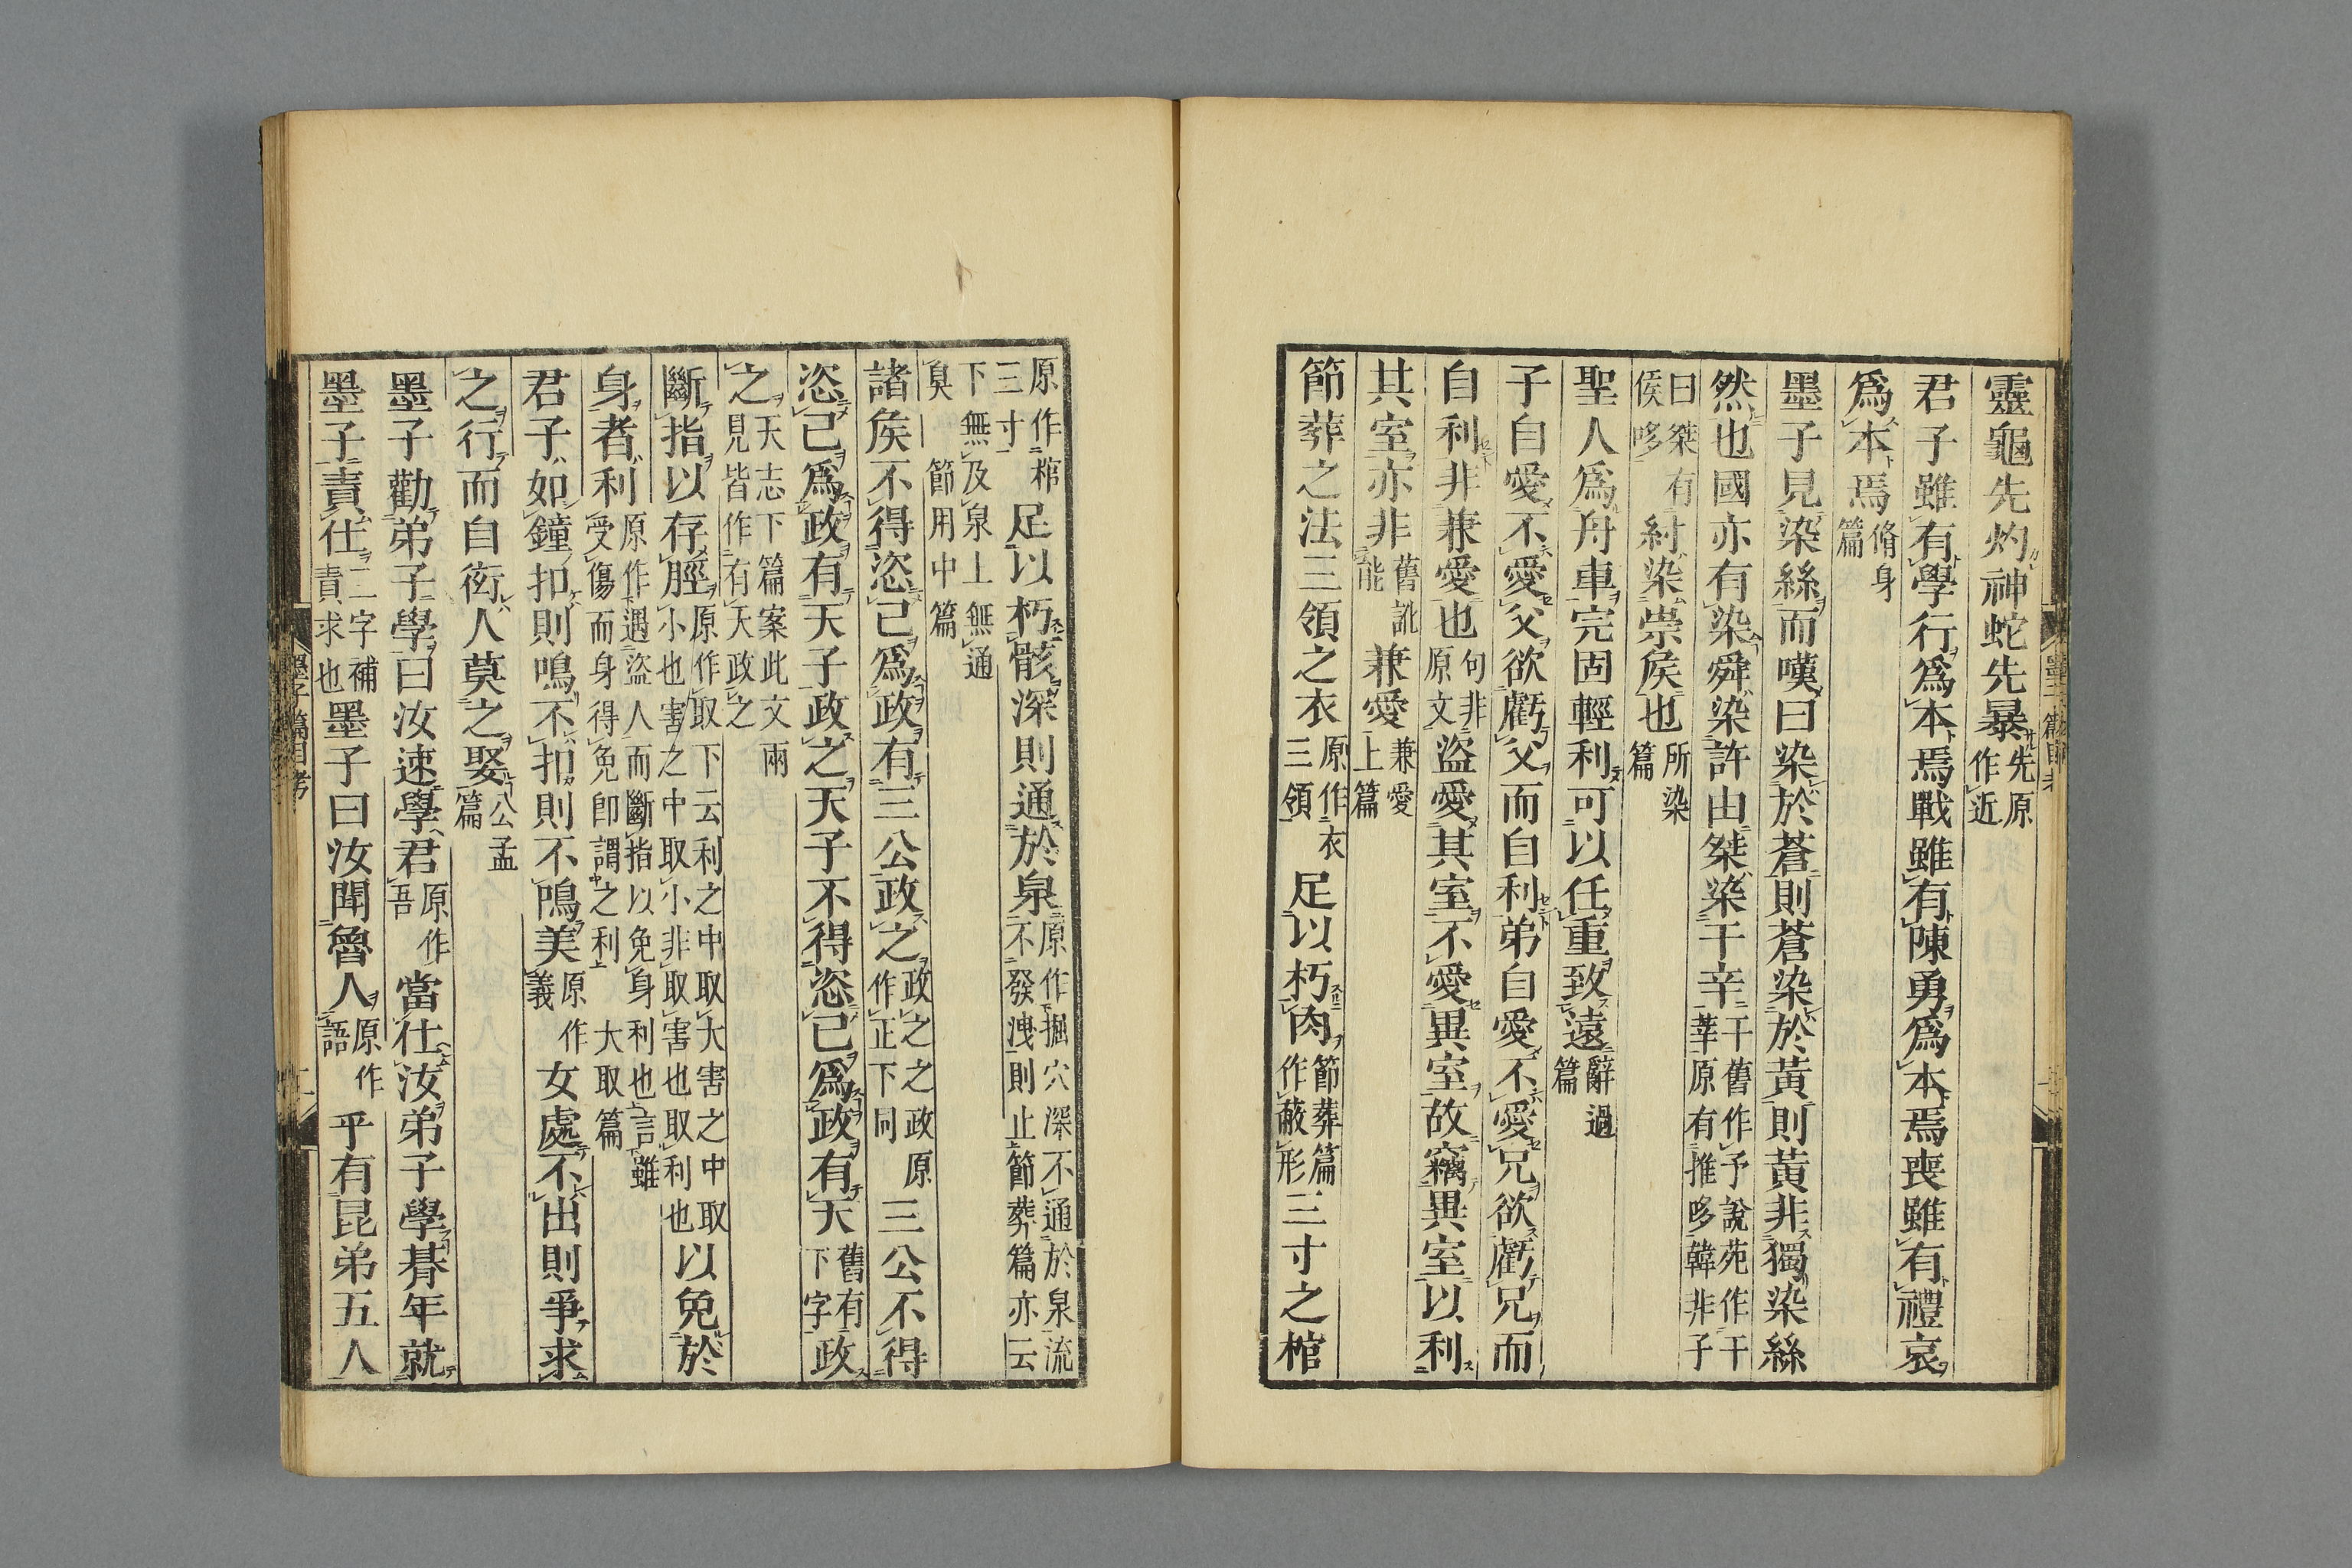 靈龜先灼神蛇先暴先原作近
君子雖有學行爲本焉戰雖有陳勇爲本焉喪雖有禮哀
爲本焉脩身篇
墨子見染絲而嘆曰染於蒼則蒼染於黃則黃非獨染絲
然也國亦有染舜染許由桀染干辛干舊作予說苑作干莘原有推哆韓非子
曰桀有侯哆紂染崇侯也所染篇
聖人爲舟車完固輕利可以任重致遠辭過篇
子自愛不愛父欲虧父而自利弟自愛不愛兄欲虧兄而
自利非兼愛也句非原文盜愛其室不愛異室故竊異室以利
其室亦非舊訛能兼愛兼愛上篇
節葬之法三領之衣原作衣三領足以朽肉節葬篇作蔽形三寸之棺
原作棺三寸足以朽骸深則通於泉原作掘穴深不通於泉流不發洩則止節葬篇亦云
下無及泉上無通臭節用中篇
諸侯不得恣己爲政有三公政之政之之政原作正下同三公不得
恣己爲政有天子政之天子不得恣己爲政有天舊有下字政
之天志下篇案此文兩見皆作有天政之
斷指以存脛原作取下云利之中取大害之中取小也害之中取小非取害也取利也以免於
身者利原作遇盜人而斷指以免身利也言雖受傷而身得免卽謂之利大取篇
君子如鐘扣則鳴不扣則不鳴美原作義女處不出則爭求
之行而自衒人莫之娶公孟篇
墨子勸弟子學曰汝速學君原作吾當仕汝弟子學朞年就
墨子責仕二字補責求也墨子曰汝聞魯人原作語乎有昆弟五人
墨子篇目考